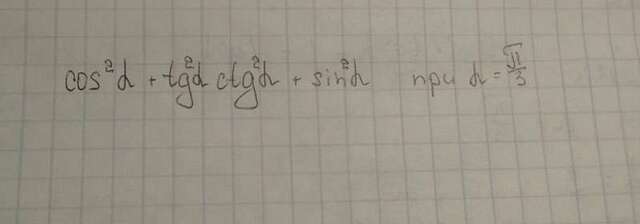 cos²α + tg²α ctg²α + sin²α при α = π/3